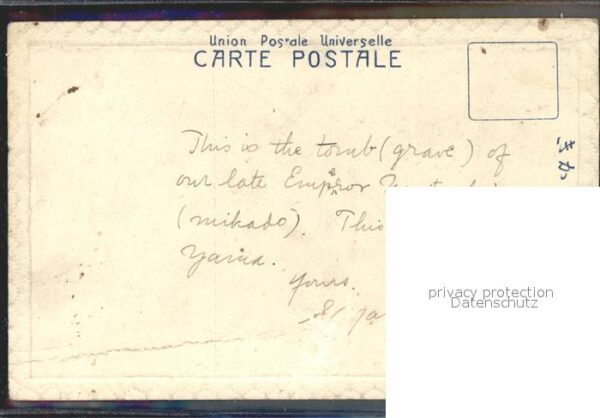 Union Postale Universelle
CARTE POSTALE
This is the tomb (grave) of
our late Emperor
(mikado). This
yama.
Yours.
privacy protection
Datenschutz